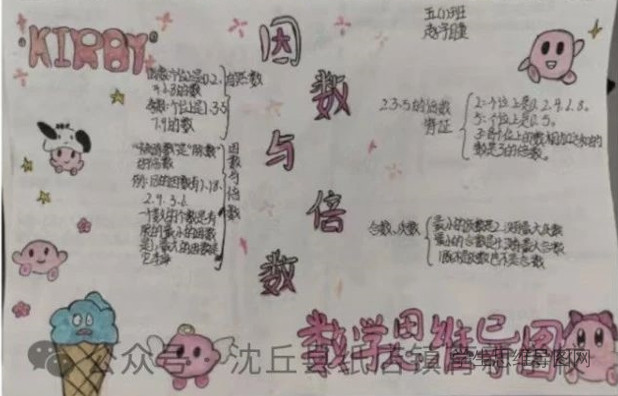 KIRBY
因数与倍数
五(1)班
自然数
偶数:个位上是0.2.
4.6.8的数
奇数:个位上是1.3.5
7.9的数
因数与倍数
的倍数
例:18的因数有1.18.
2.9.3.6
一个数的个数是有
限的最小的因数
是1,最大的因数是
它本身
2.3.5的倍数
特征
2:个位上是0.2.4.6.8。
5:个位上是0.5。
数是3的倍数。
合数、质数
最小的质数是2
最小的合数是4
1既不是质数也不是合数
数学思维导图
公众号 沈丘县纸店镇
学生思维导图网